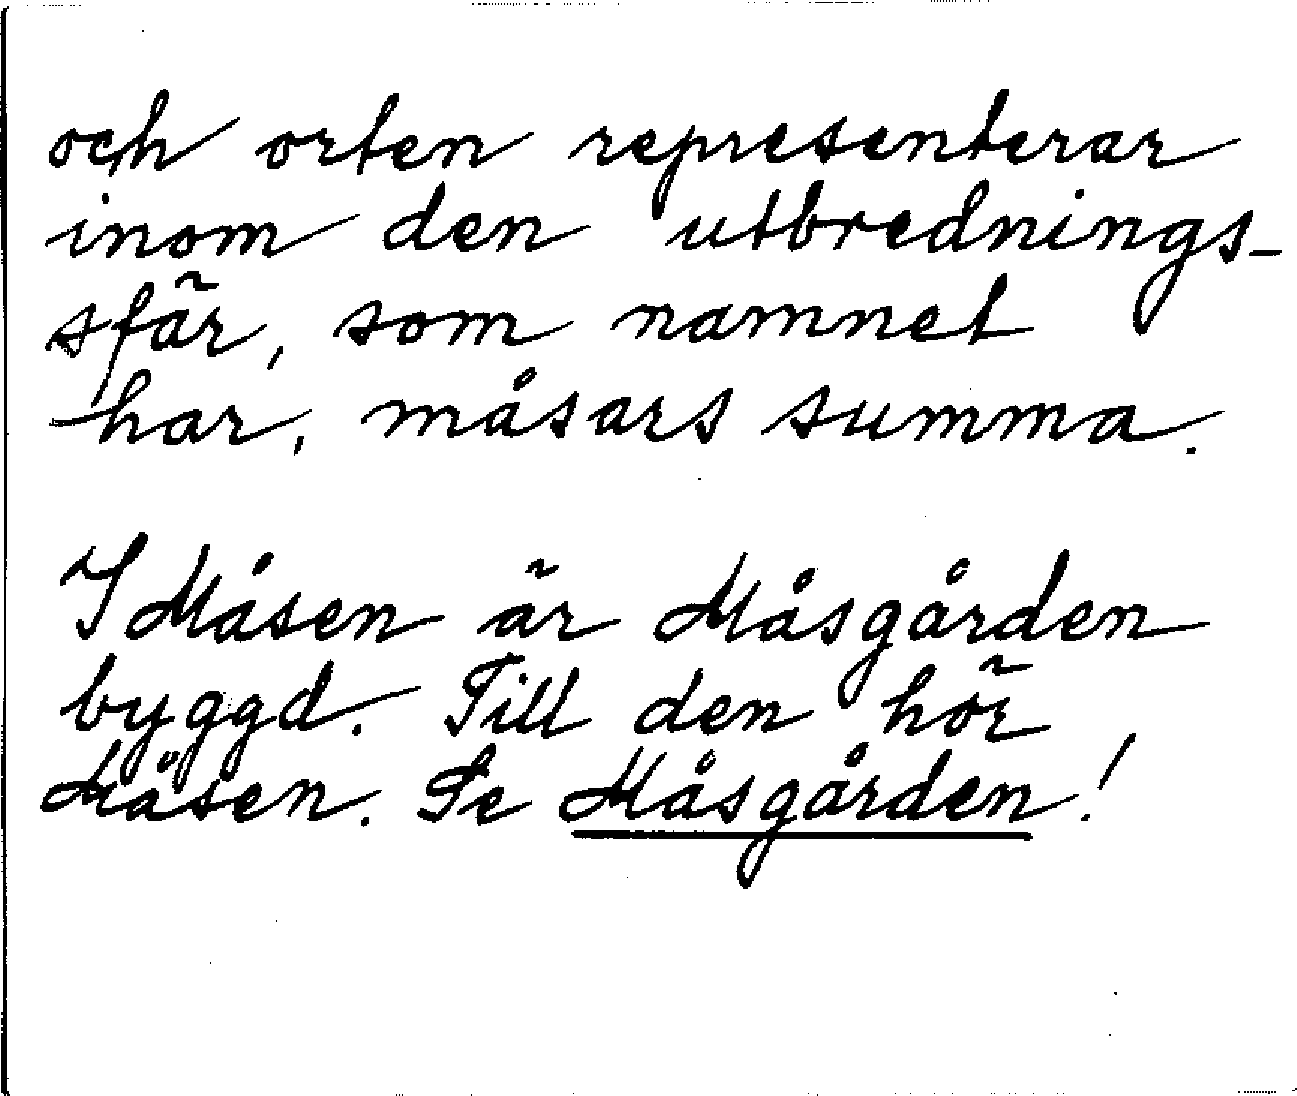 och orten representerar
inom den utbrednings-
sfär, som namnet
har, måsars summa.
I Måsen är Måsgården
byggd. Till den hör
Måsen. Se Måsgården!